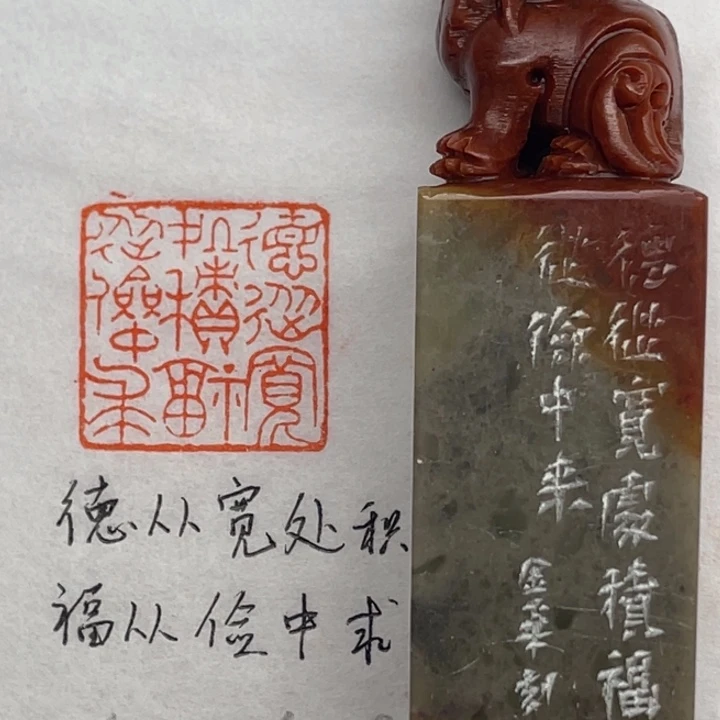 德從寬
處積福
從儉中求
德从宽处积
福从俭中求
德從寬處積福
從儉中来
金華刻